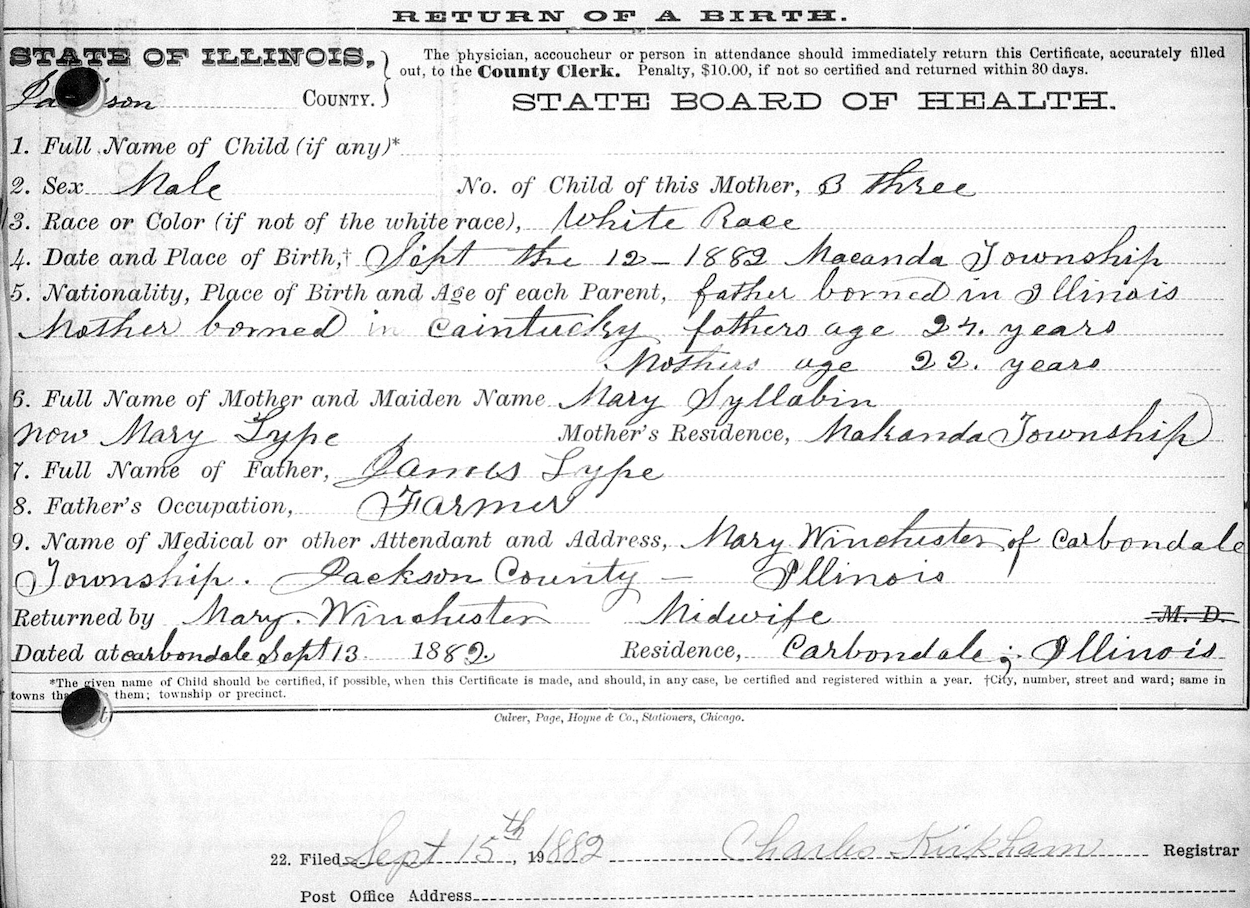 RETURN OF A BIRTH.
STATE OF ILLINOIS,
son COUNTY.
The physician, accoucheur or person in attendance should immediately return this Certificate, accurately filled
out, to the County Clerk. Penalty, $10.00, if not so certified and returned within 30 days.
STATE BOARD OF HEALTH.
1. Full Name of Child (if any)*
2. Sex Male No. of Child of this Mother, 3 three
3. Race or Color (if not of the white race), White Race
4. Date and Place of Birth,† Sept the 12 - 1882 Macanda Township
5. Nationality, Place of Birth and Age of each Parent, father borned in Illinois
Mother borned in Caintucky fathers age 24. years
Mothers age 22. years
6. Full Name of Mother and Maiden Name Mary Syllabin
now Mary Lype Mother's Residence, Makanda Township
7. Full Name of Father, James Lype
8. Father's Occupation, Farmer
9. Name of Medical or other Attendant and Address, Mary Winchester of Carbondale
Township. Jackson County - Illinois
Returned by Mary. Winchester Midwife M. D.
Dated at carbondale Sept 13 1882 Residence, Carbondale ; Illinois
*The given name of Child should be certified, if possible, when this Certificate is made, and should, in any case, be certified and registered within a year. †City, number, street and ward; same in
towns them; township or precinct.
Culver, Page, Hoyne & Co., Stationers, Chicago.
22. Filed Sept 15th, 19 1882 Charles Kirkham Registrar
Post Office Address